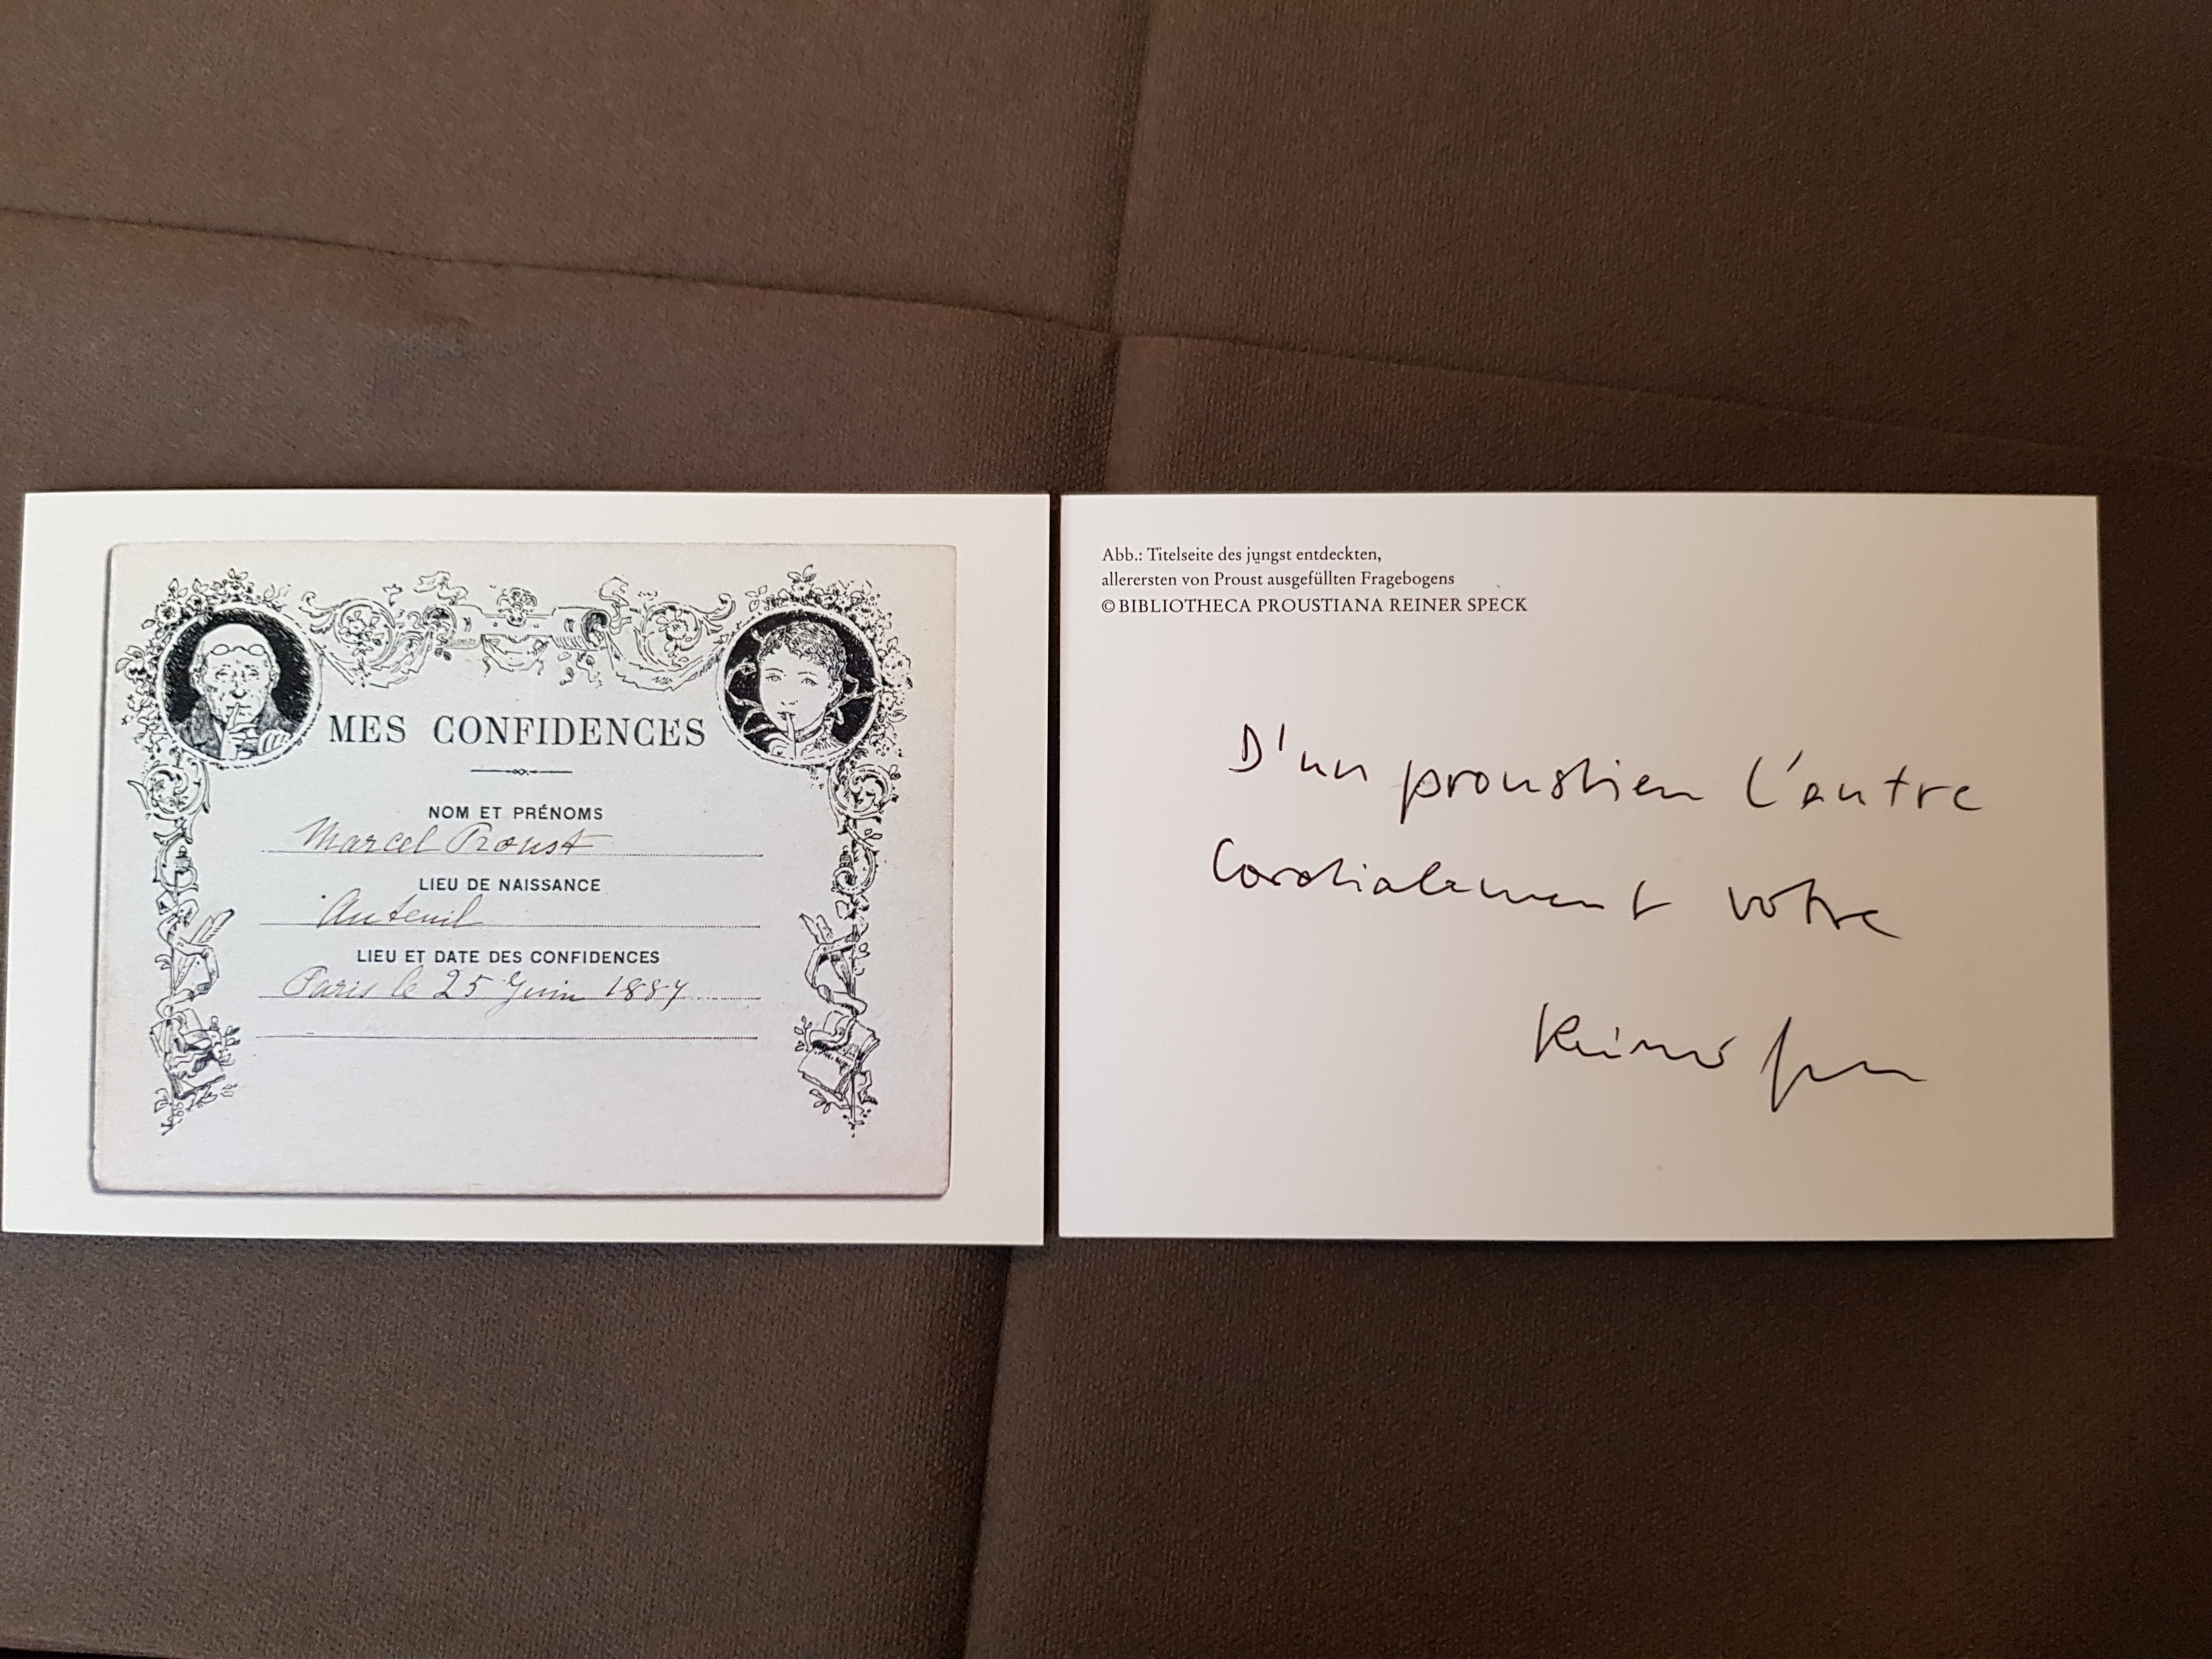 MES CONFIDENCES
NOM ET PRÉNOMS
Marcel Proust
LIEU DE NAISSANCE
Auteuil
LIEU ET DATE DES CONFIDENCES
Paris le 25 Juin 1887
Abb.: Titelseite des jüngst entdeckten,
allerersten von Proust ausgefüllten Fragebogens
© BIBLIOTHECA PROUSTIANA REINER SPECK
D'un proustien l'autre
Cordialement votre
Reiner Speck